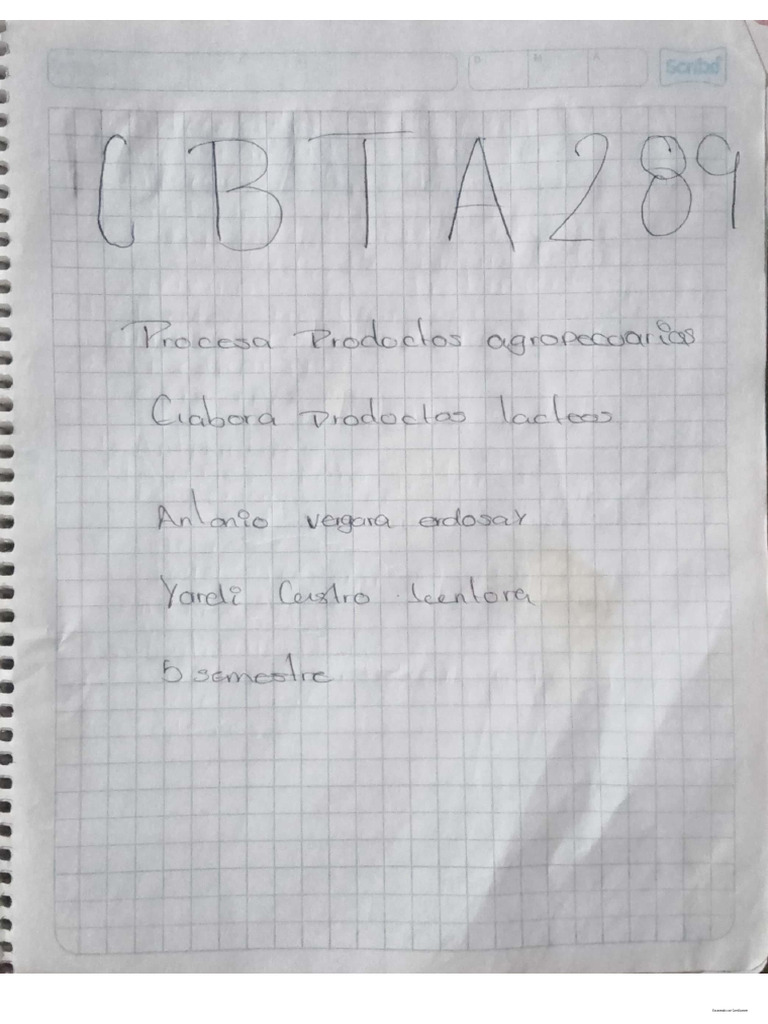 D M A Scribe
CBTA 289
Procesa Prodoctos agropecoarios
Elabora Prodoctos lacteos
Antonio vergara
Yardi Castro
5 semestre
Escaneado con CamScanner